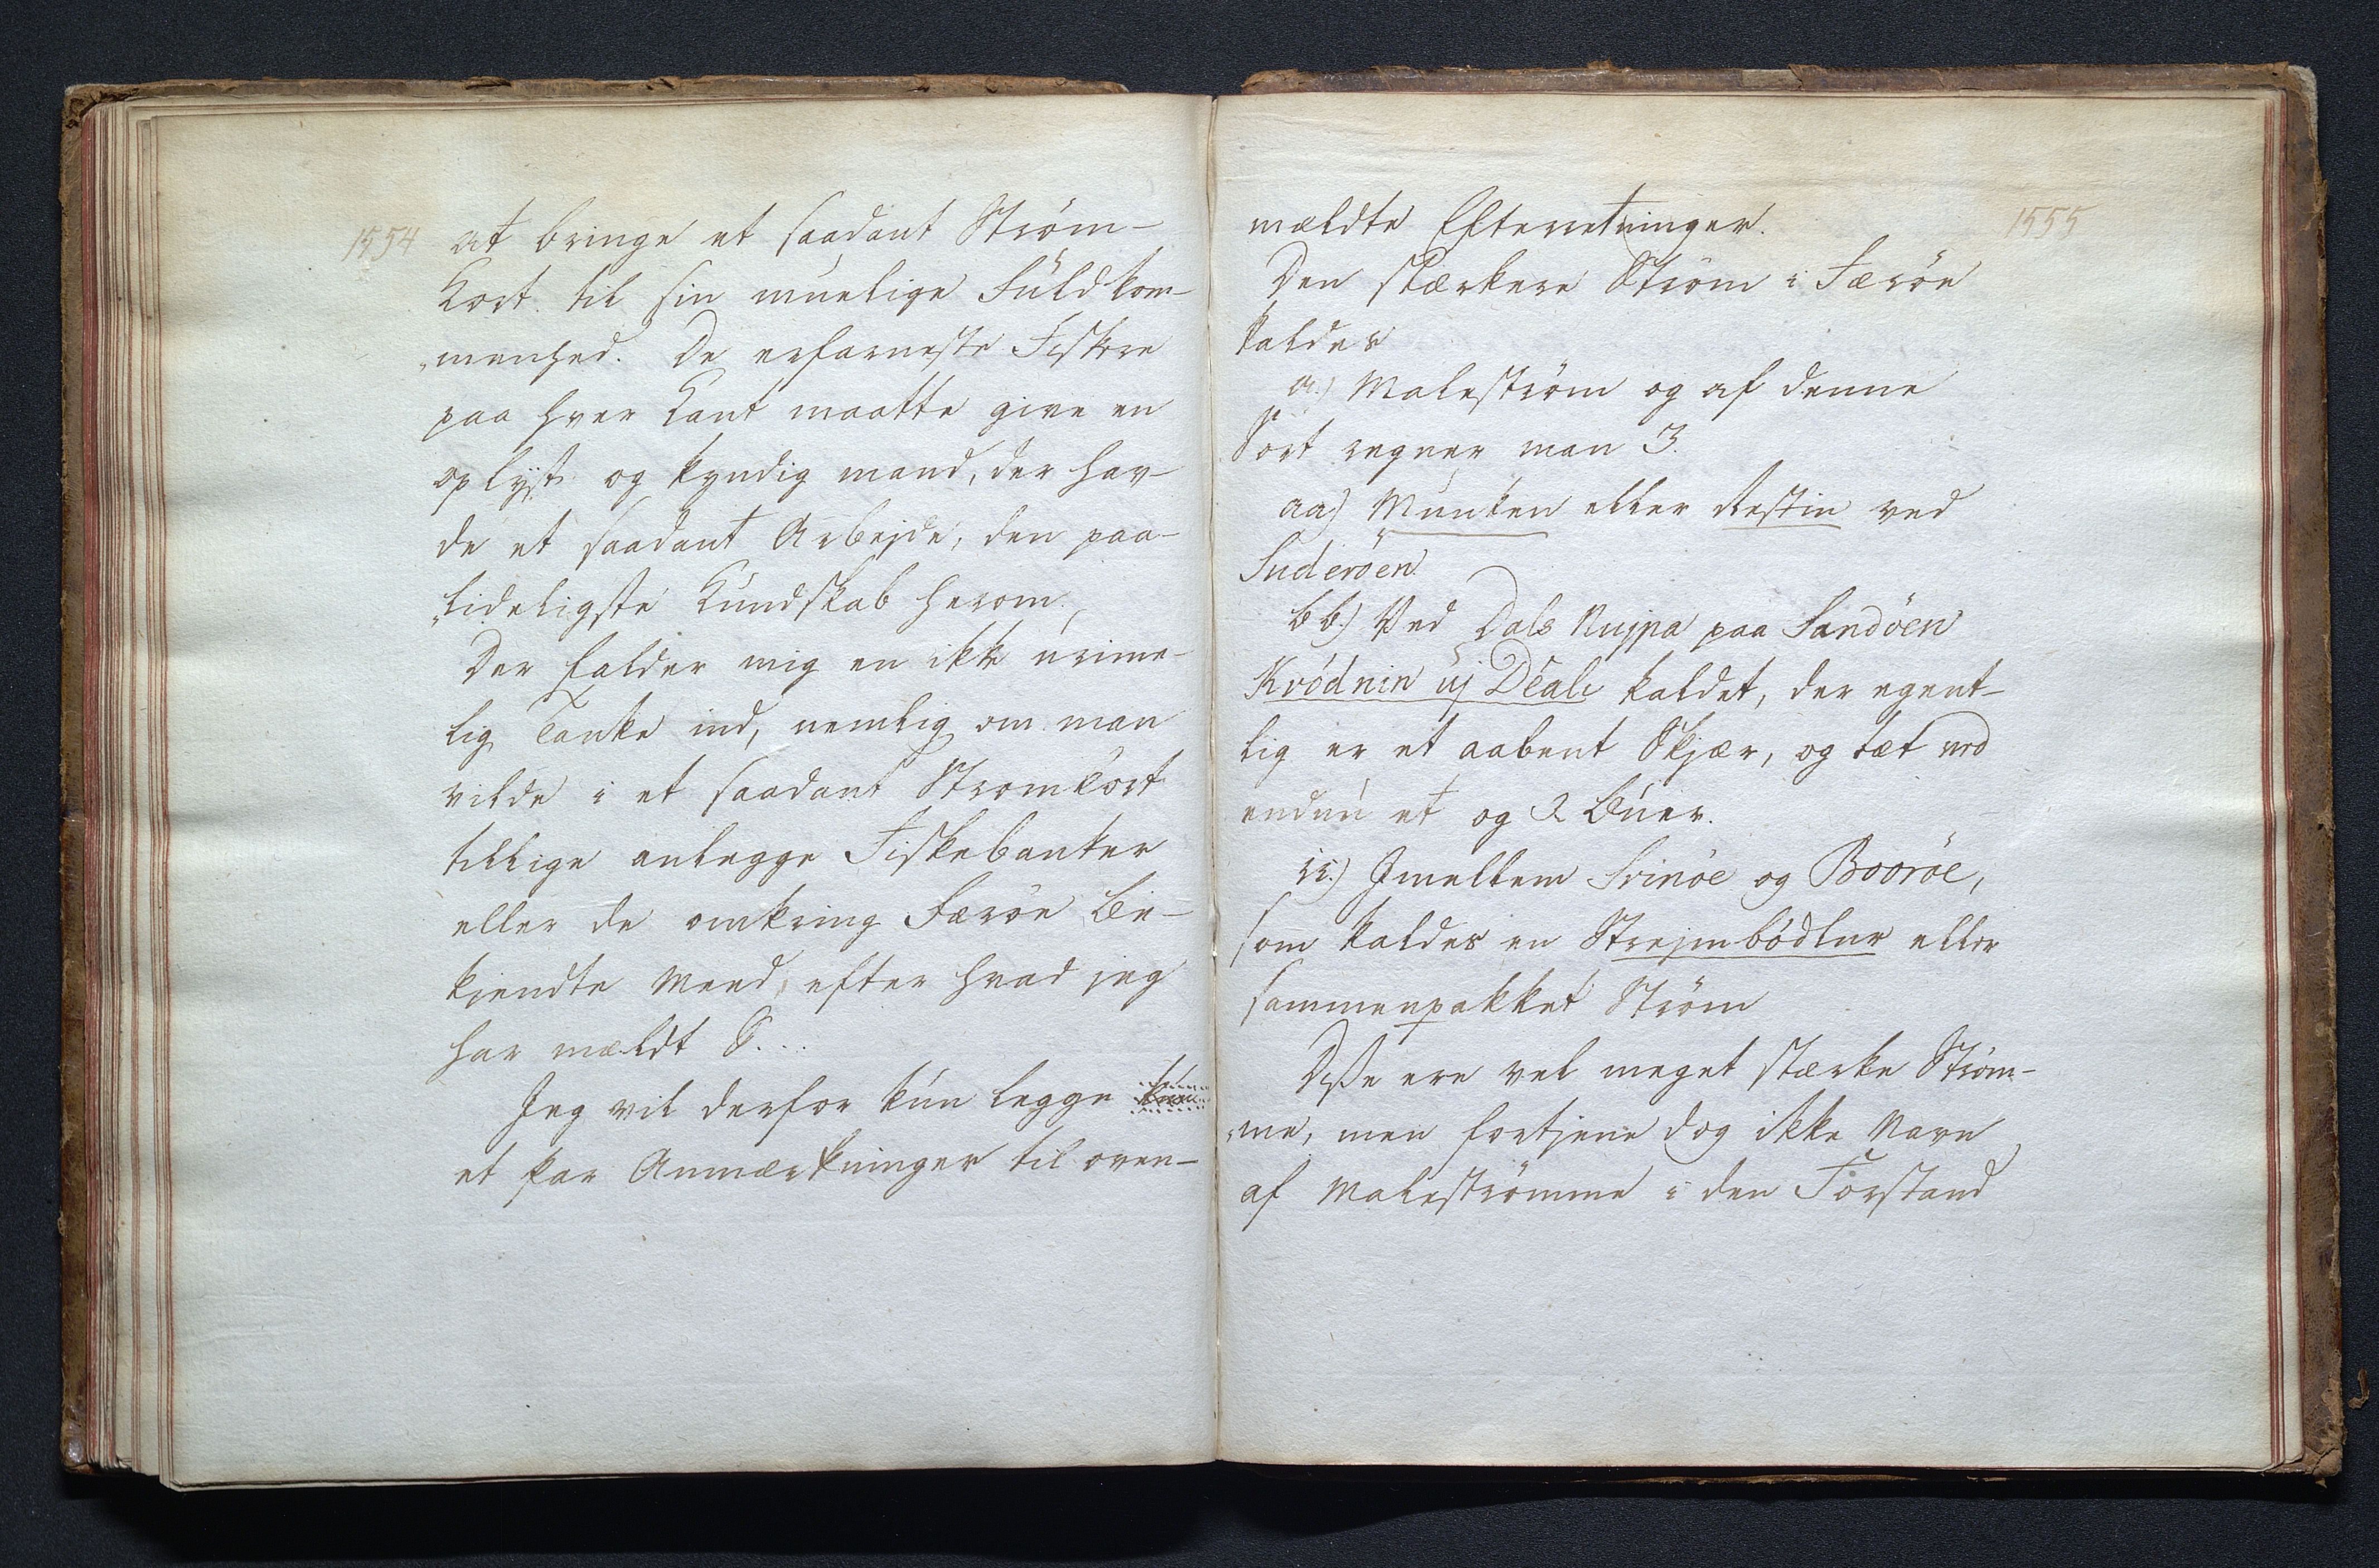 1554
at bringe et saadant Ström-
Kort til sin muelige Fuldkom-
menhed. De erfarneste Fiskere
paa hver Kant maatte give en
oplyst og kyndig mand, der hav-
de et saadant Arbejde, den paa-
lideligste Kundskab herom.
Der falder mig en ikke urime-
lig Tanke ind, nemlig om man
vilde i et saadant Stromkort
tillige anlegge Fiskebanker
eller de omkring Færöe be-
kjendte Meed, efter hvad jeg
har mældt S...
Jeg vil derfor kun legge
et par Anmærkninger til oven-
1555
mældte Efterretninger.
Den stærkere Ström i Færöe
kaldes
a.) Maleström og af denne
Sort regner man 3.
aa) Munken eller Restin ved
Suderöen.
bb.) Ved Dals Nujpa paa Sandöen
Kvödnin uj Déali kaldet, der egent-
lig er et aabent Skjær, og tæt ved
endnu et og 2 Buer.
cc.) Jmellem Svinöe og Booröe,
som kaldes en Strejmbödlur eller
sammenpakket Ström
Disse ere vel meget stærke Ström-
me, men fortjene dog ikke Navn
af Maleströmme i den Forstand